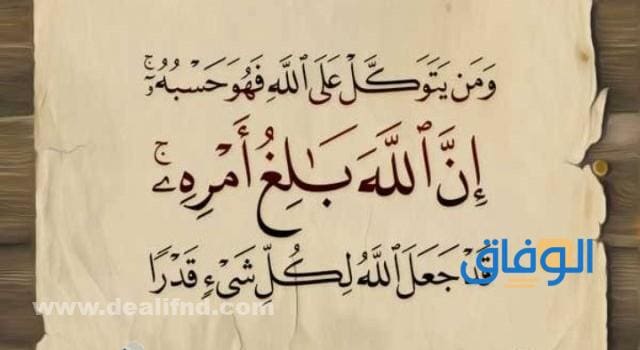 وَمَن يَتَوَكَّلْ عَلَى ٱللَّهِ فَهُوَ حَسْبُهُۥٓ ۚ
إِنَّ ٱللَّهَ بَـٰلِغُ أَمْرِهِۦ ۚ
قَدْ جَعَلَ ٱللَّهُ لِكُلِّ شَىْءٍ قَدْرًا
الوفاق
www.dealifnd.com